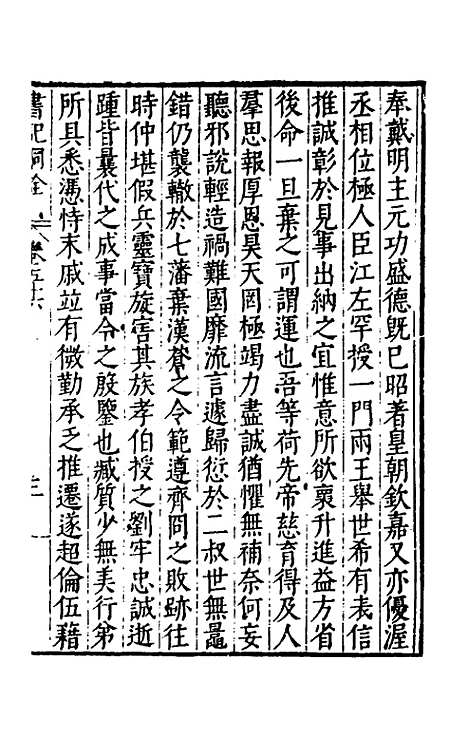 奉戴明主元功盛德旣已昭著皇朝欽嘉又亦優渥
丞相位極人臣江左罕授一門兩王舉世希有表信
推誠彰於見事出納之宜惟意所欲裒升進益方省
後命一旦棄之可謂運也吾等荷先帝慈育得及人
羣思報厚恩昊天罔極竭力盡誠猶懼無補奈何妄
聽邪說輕造禍難國靡流言遽歸愆於二叔世無鼂
錯仍襲轍於七藩棄漢蒼之令範遵齊冏之敗跡往
時仲堪假兵靈寶旋害其族孝伯授之劉牢忠誠逝
踵皆曩代之成事當今之殷鑒也臧質少無美行弟
所具悉憑恃末戚竝有微勤承乏推遷遂超倫伍藉
書記洞詮 卷五十六 十一